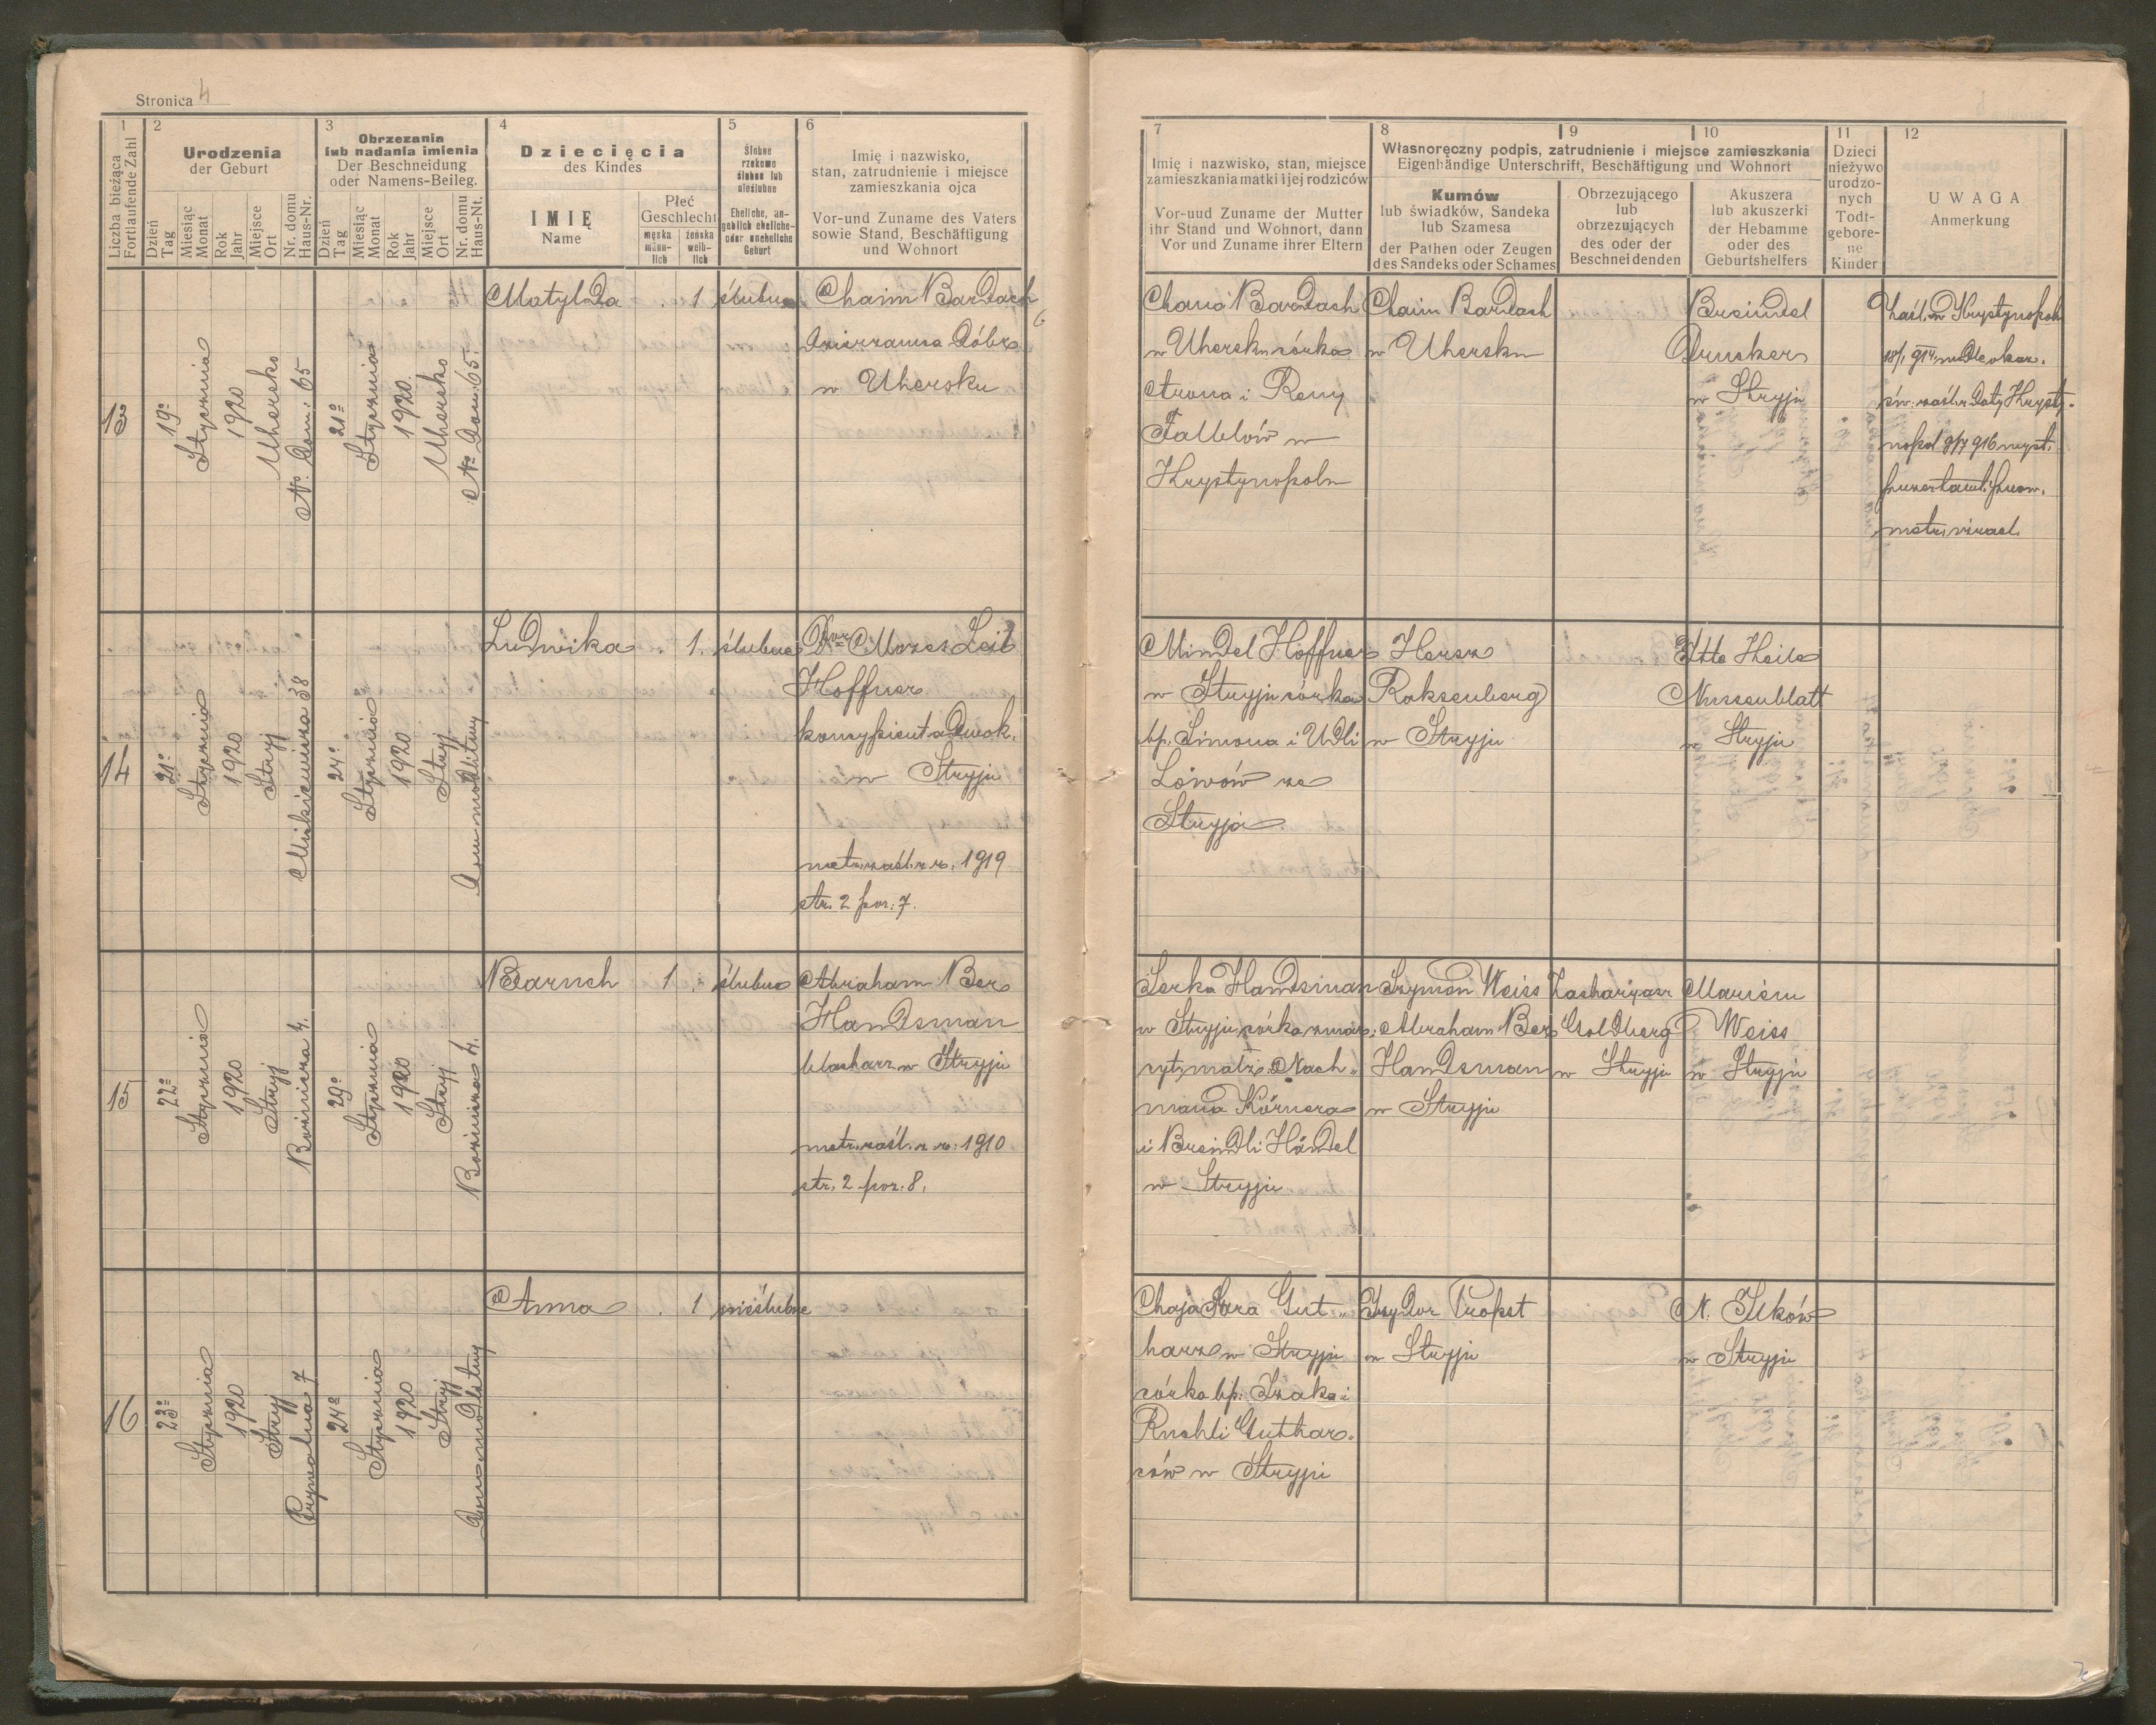 Stronica 4
1
Liczba bieżąca
Fortlaufende Zahl
2
Urodzenia
der Geburt
Dzień
Tag
Miesiąc
Monat
Rok
Jahr
Miejsce
Ort
Nr. domu
Haus-Nr.
3
Obrzezania
lub nadania imienia
Der Beschneidung
oder Namens-Beileg.
Dzień
Tag
Miesiąc
Monat
Rok
Jahr
Miejsce
Ort
Nr. domu
Haus-Nt.
4
Dziecięcia
des Kindes
IMIĘ
Name
Płeć
Geschlecht
męska
männ-
lich
żeńska
weib-
lich
5
Ślubne
rzekomo
ślubne lub
nieślubne
Eheliche, an-
geblich eheliche-
oder uneheliche
Geburt
6
Imię i nazwisko,
stan, zatrudnienie i miejsce
zamieszkania ojca
Vor-und Zuname des Vaters
sowie Stand, Beschäftigung
und Wohnort
7
Imię i nazwisko, stan, miejsce
zamieszkania matki i jej rodziców
Vor-uud Zuname der Mutter
ihr Stand und Wohnort, dann
Vor und Zuname ihrer Eltern
8
9
10
Własnoręczny podpis, zatrudnienie i miejsce zamieszkania
Eigenhändige Unterschrift, Beschäftigung und Wohnort
Kumów
lub świadków, Sandeka
lub Szamesa
der Pathen oder Zeugen
des Sandeks oder Schames
Obrzezującego
lub
obrzezujących
des oder der
Beschneidenden
Akuszera
lub akuszerki
der Hebamme
oder des
Geburtshelfers
11
Dzieci
nieżywo
urodzo-
nych
Todt-
gebore-
ne
Kinder
12
UWAGA
Anmerkung
13
19º
Stycznia
1920
Uhersko
Nº Dom: 65
21º
Stycznia
1920.
Uhersko
Nº Dom: 65.
Matylda . 1 ślubne
Chaim Bardach
dzierzawca dóbr
w Uhersku
Chana Bardach
w Uhersku córka
Arona i Reny
w
Krystynopolu
Chaim Bardach
w Uhersku
Breindel
Drucker
w Stryju
Zaśl. w Krystynopolu
metr. izrael.
14
21º
Stycznia
1920
Stryj
Mickiewicza 38
24º
Stycznia
1920
Stryj
Dom modlitwy
Ludwika . 1. ślubne
Mozes Leib
Hoffner
koncypient adwok.
w Stryju
metr. zaśl. z r. 1919
str. 2 poz: 7.
Mindel Hoffner
w Stryju córka
bp. Simona i Udli
Löwów ze
Stryja
Hersz
Roksenberg
w Stryju
Itte Heile
Nussenblatt
w Stryju
15
22º
Stycznia
1920
Stryj
Boznicza 4.
29º
Stycznia
1920
Stryj
Boznicza 4.
Baruch 1 . ślubne
Abraham Ber
Handsman
blacharz w Stryju
metr. zaśl. z r: 1910
str. 2 poz: 8.
Serka Handsman
w Stryju córka zmar.
ryt. małż. Nach-
mana Körnera
i Breindli Händel
w Stryju
Szymon Weiss
Abraham Ber
Handsman
w Stryju
Zacharjasz
Goldberg
w Stryju
Mariem
Weiss
w Stryju
16
23º
Stycznia
1920
Stryj
24º
Stycznia
1920
Stryj
Dom modlitwy
Anna . 1 nieślubne
Chaja Sara Gut-
harz w Stryju
córka bp. Izaka i
Ruchli Guthar-
ców w Stryju
Izydor Propst
w Stryju
N. Ilków
w Stryju